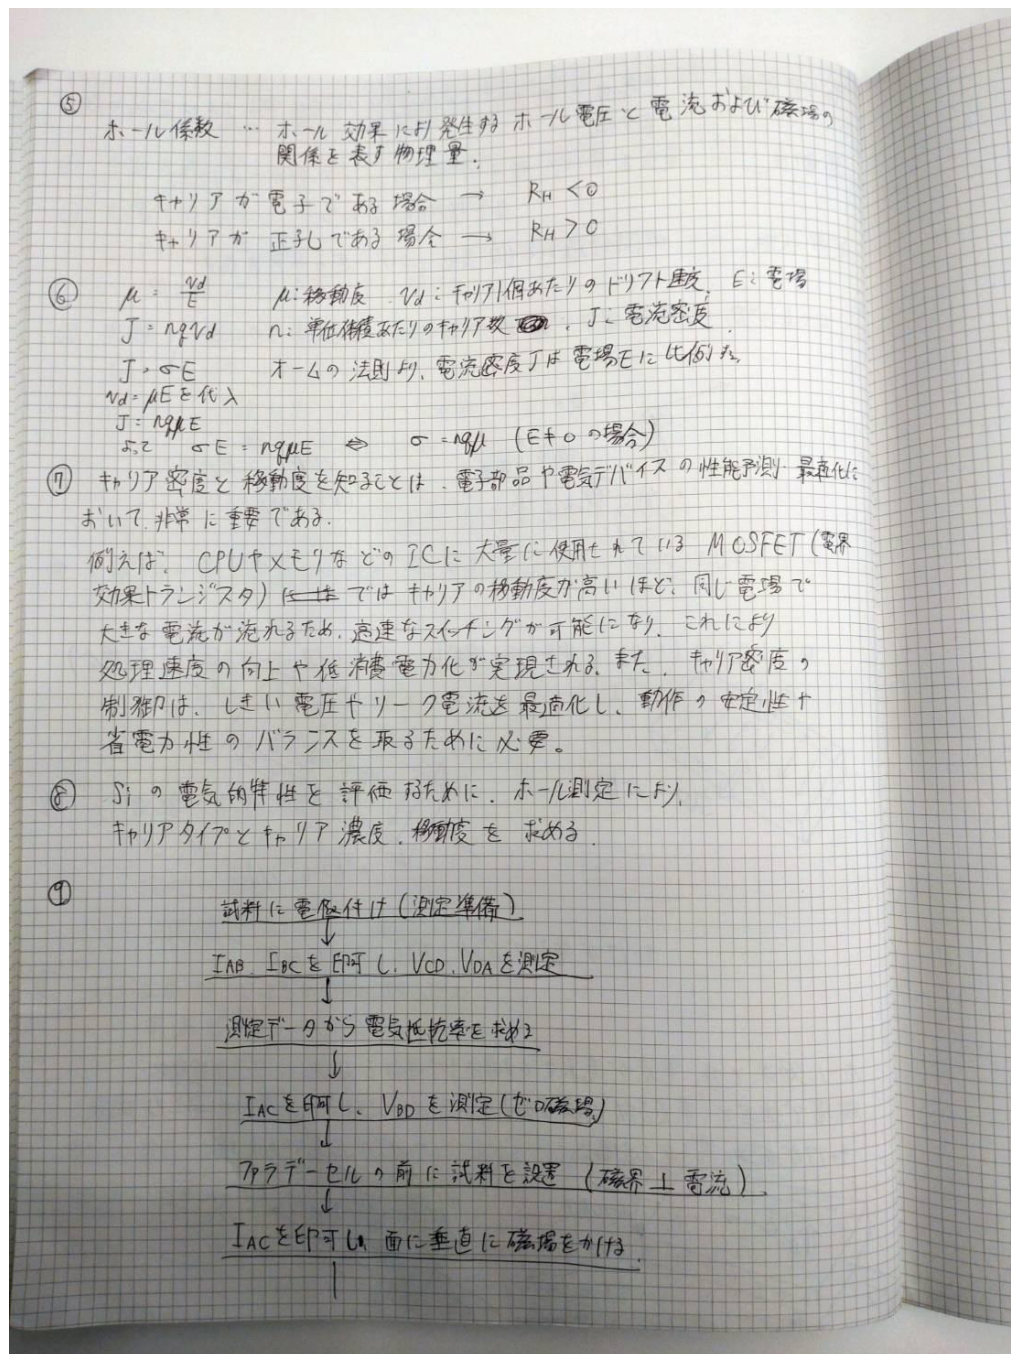 ⑤
ホール係数 … ホール効果により発生するホール電圧と電流および磁場の
関係を表す物理量.
キャリアが電子である場合 → RH < 0
キャリアが正孔である場合 → RH > 0
⑥ μ = vd/E μ:移動度. vd:キャリア1個あたりのドリフト速度. E:電場
J = nqvd n:単位体積あたりのキャリア数 . J:電流密度.
J = σE オームの法則より、電流密度Jは電場Eに比例する.
vd = μEを代入
J = nqμE
よって σE = nqμE ⇔ σ = nqμ (E≠0 の場合)
⑦ キャリア密度と移動度を知ることは、電子部品や電気デバイスの性能予測・最適化に
おいて、非常に重要である.
例えば、CPUやメモリなどのICに大量に使用されている MOSFET(電界
効果トランジスタ) ではキャリアの移動度が高いほど、同じ電場で
大きな電流が流れるため、高速なスイッチングが可能になり、これにより
処理速度の向上や低消費電力化が実現される. また、キャリア密度の
制御は、しきい電圧やリーク電流を最適化し、動作の安定性や
省電力性のバランスを取るために必要。
⑧ Siの電気的特性を評価するために、ホール測定により、
キャリアタイプとキャリア濃度、移動度を求める.
⑨
試料に電極付け(測定準備)
↓
IAB、IBCを印可し、VCD、VDAを測定
↓
測定データから電気抵抗率を求める
↓
IACを印可し、VBDを測定(ゼロ磁場)
↓
ファラデーセルの前に試料を設置 (磁界⊥電流).
↓
IACを印可し、面に垂直に磁場をかける.